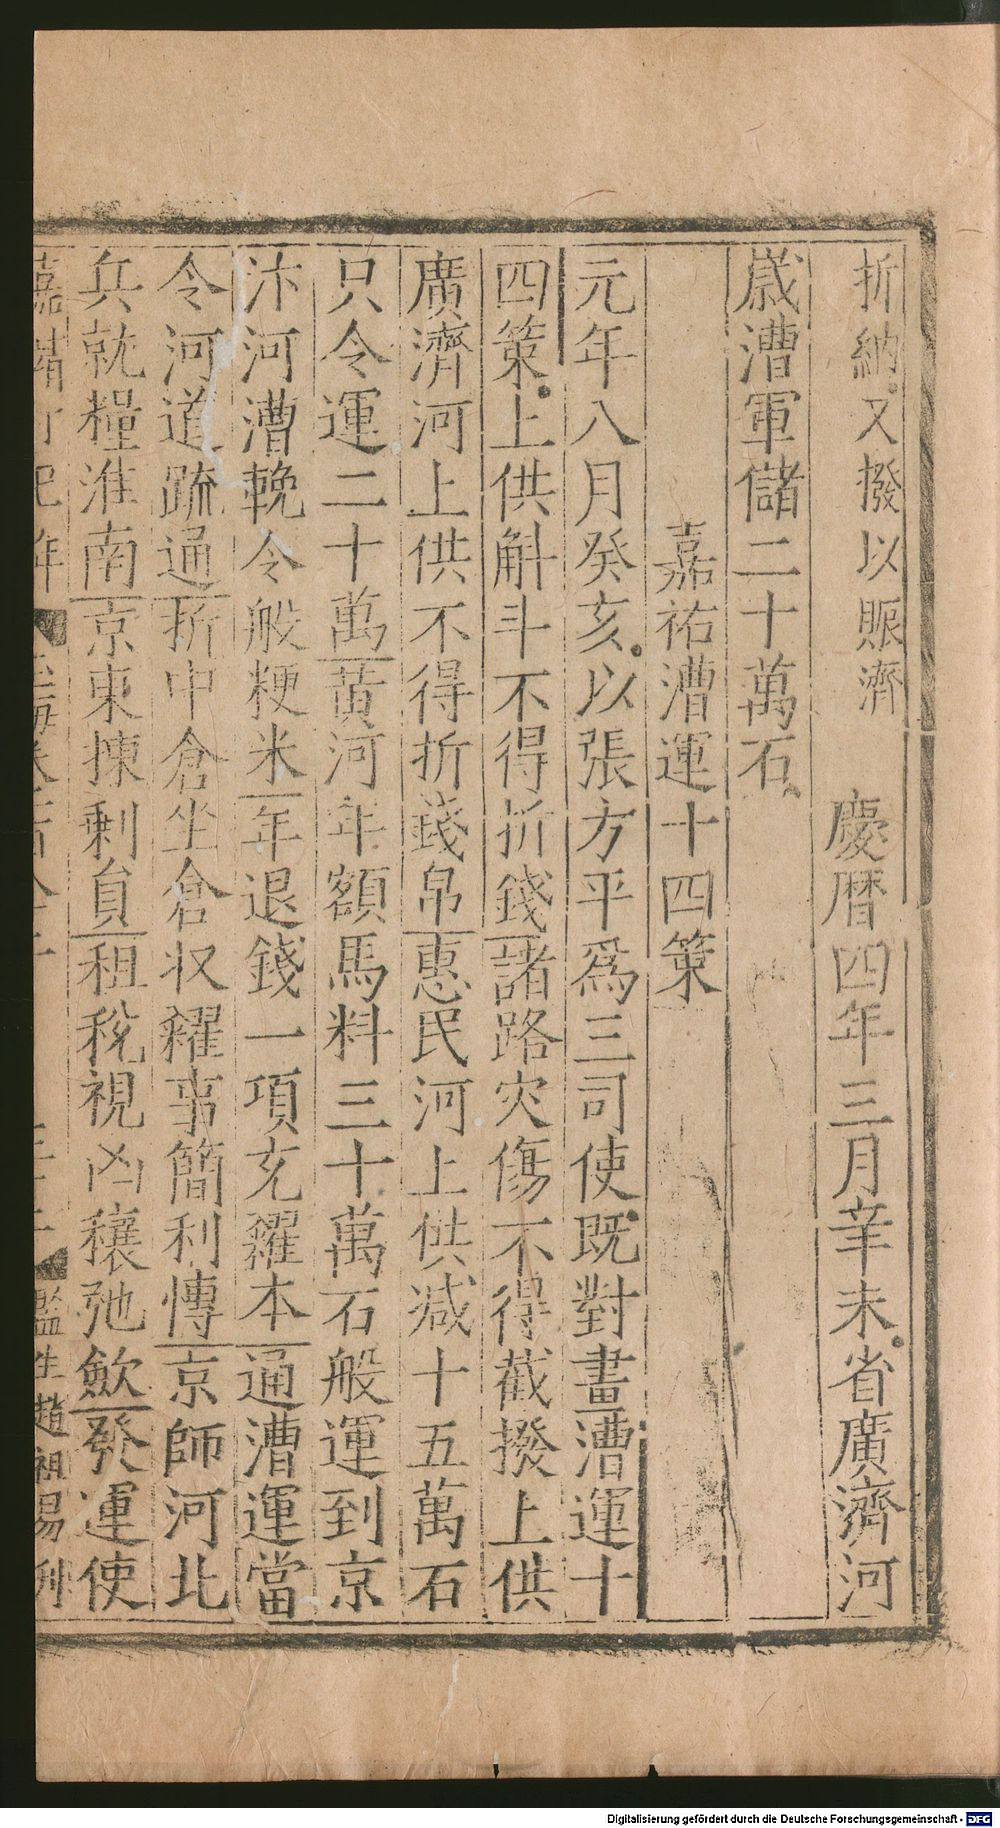 折納又撥以賑濟　慶曆四年三月辛未省廣濟河
歲漕軍儲二十萬石
嘉祐漕運十四策
元年八月癸亥以張方平爲三司使既對畫漕運十
四策上供斛斗不得折錢諸路灾傷不得截撥上供
廣濟河上供不得折錢帛惠民河上供减十五萬石
只令運二十萬黄河年額馬料三十萬石般運到京
汴河漕輓令般粳米一年退錢一項充糴本通漕運當
令河道疏通折中倉坐倉収糴事簡利愽京師河北
兵就糧淮南京東揀剰負租稅視凶穰弛歛發運使
嘉靖丁巳年　玉海卷百八十二　監生趙祖易刊
Digitalisierung gefördert durch die Deutsche Forschungsgemeinschaft - DFG